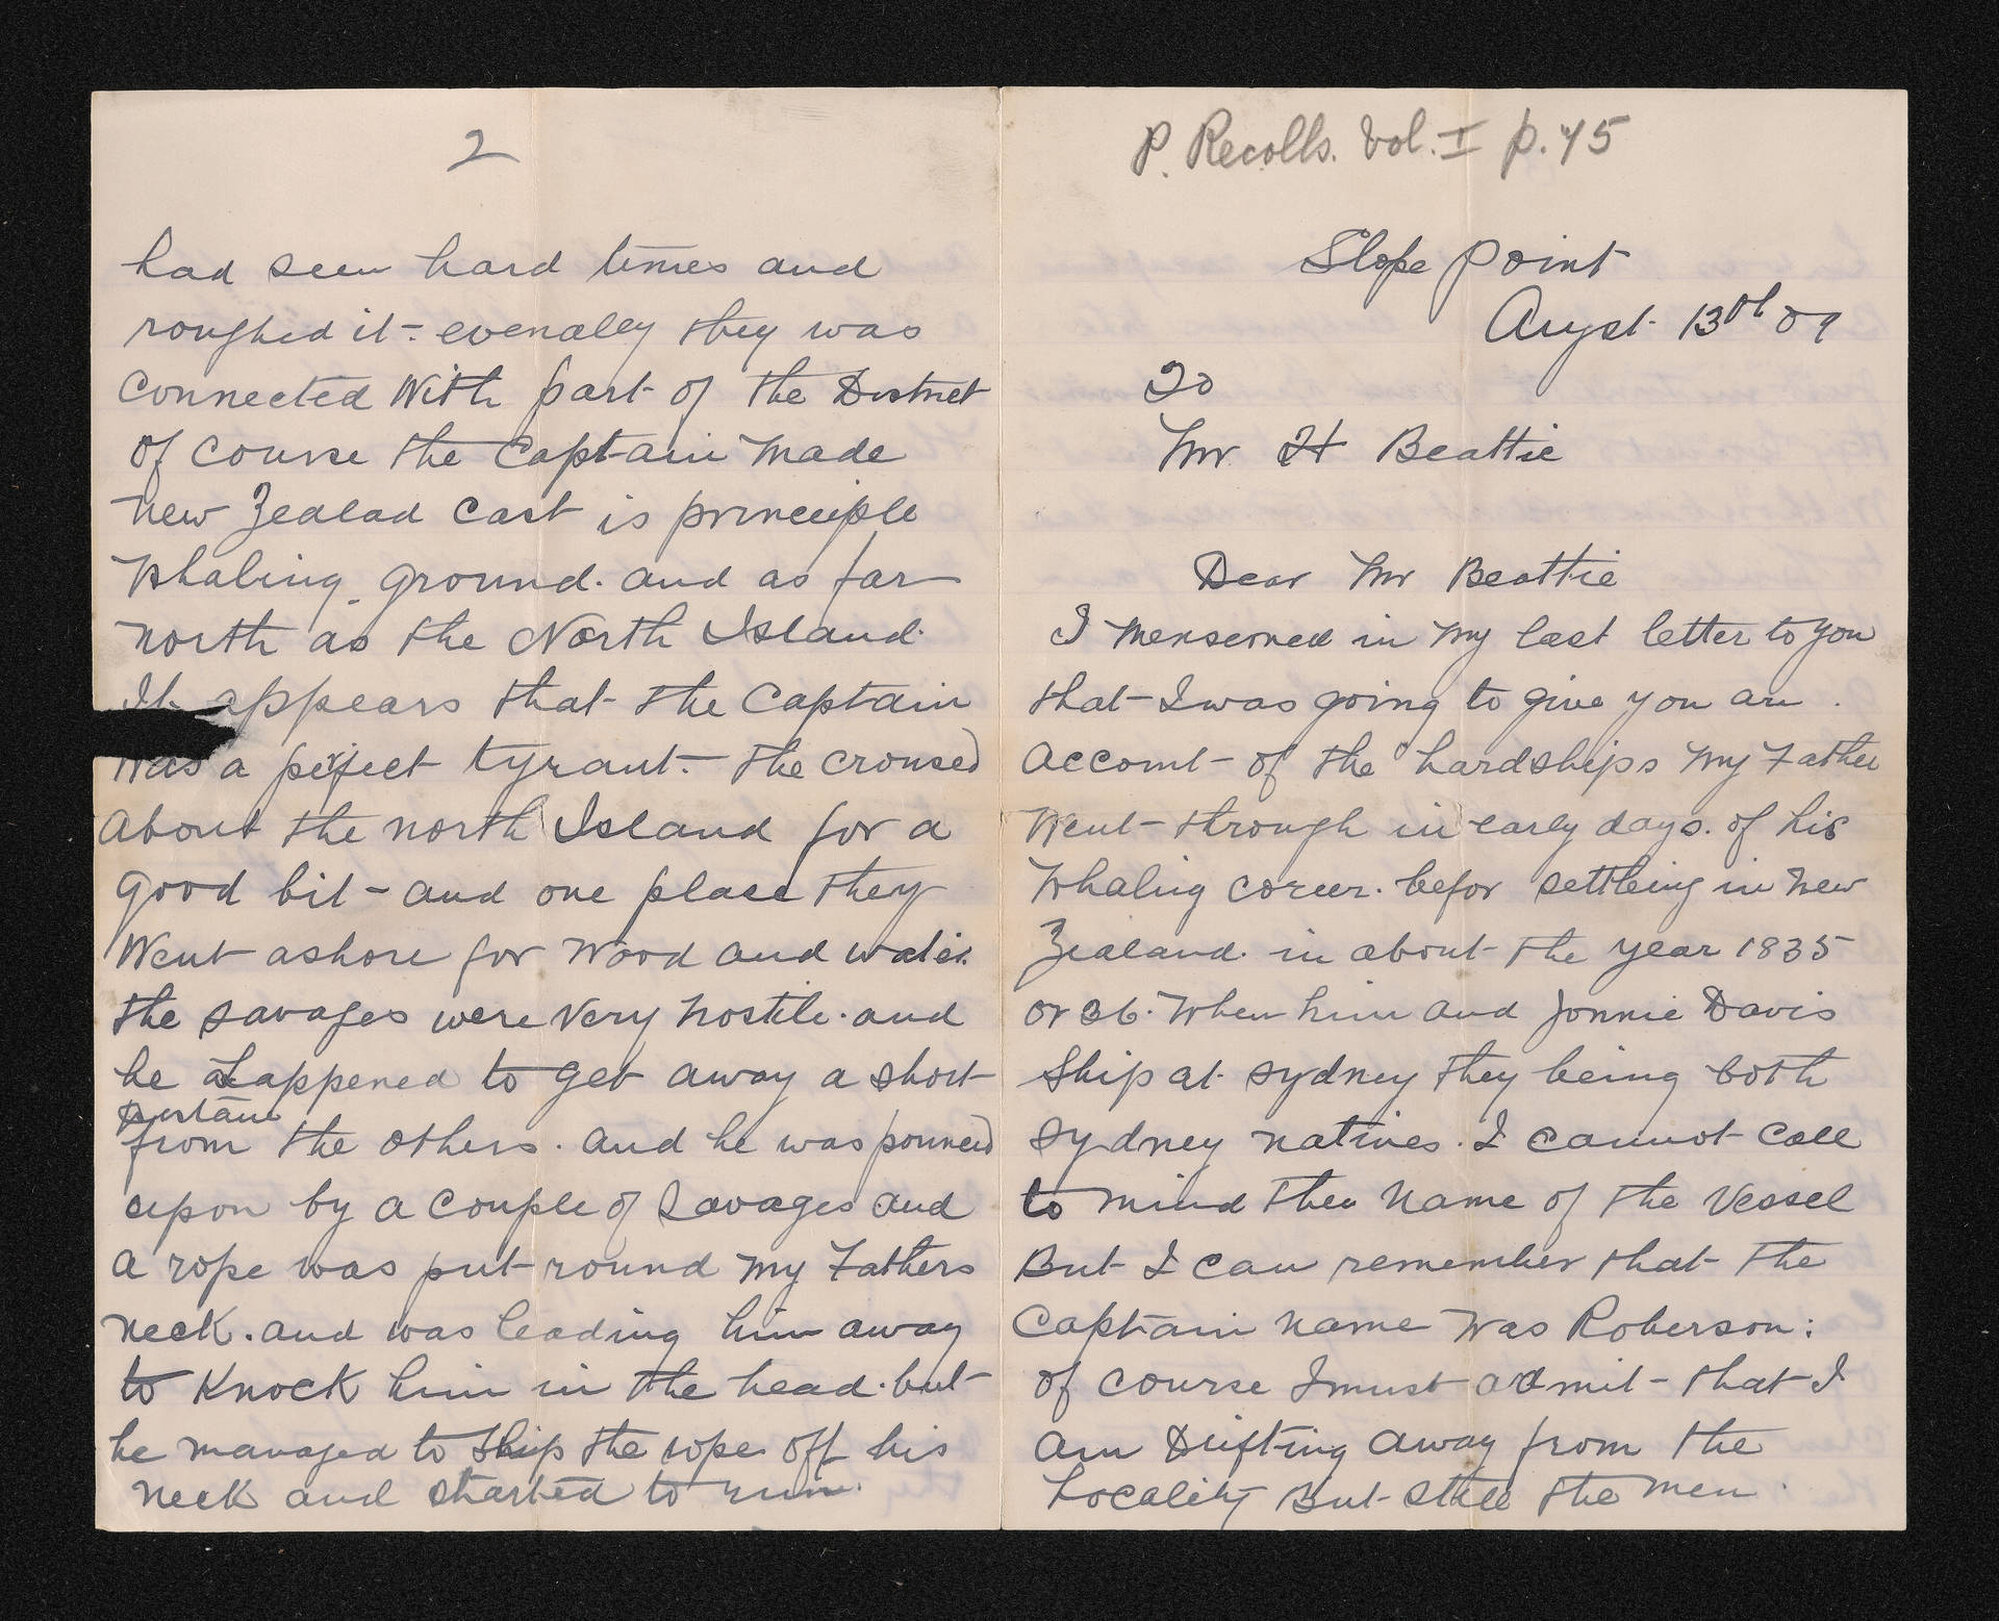 P. Recolls. Vol. I p. 45
Slope Point
Augst. 13th 09
To
Mr H Beattie
Dear Mr Beattie
I menseined in my last letter to you
that I was going to give you an
account of the hardships my Father
Went through in early days. of his
Whaling coreer. befor settleing in New
Zealand. in about the year 1835
or 36. When him and Jonnie Davis
Ship at Sydney they being both
Sydney natives. I cannot call
to mind the name of the Vessel
But I can remember that the
Captain name was Roberson:
of course I must admit that I
am Drifting away from the
Locality But still the men
2
had seen hard times and
roughed it - evenaley they was
connected With part of the District
of course the Captain made
New Zealad Cast is princeiple
Whaling ground. and as far
north as the North Island.
It appears that the Captain
Was a pefect tyrant. the croused
About the north Island for a
good bit - and one place they
Went ashore for Wood and water.
the savages were very hostile. and
he happened to get away a short
Distance
from the others. and he was pounced
upon by a couple of Savages and
a rope was put round my Fathers
neck. and was leading him away
to Knock him in the head. but
he managed to Slip the rope off his
neck and started to run.